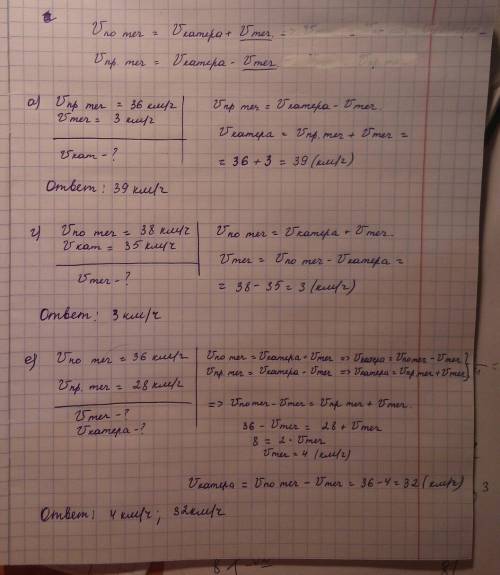 Vпо теч = Vкатера + Vтеч. =
Vпр. теч = Vкатера - Vтеч
а) Vпр теч = 36 км/ч
Vтеч = 3 км/ч
Vкат - ?
Vпр теч = Vкатера - Vтеч.
Vкатера = Vпр. теч + Vтеч =
= 36 + 3 = 39 (км/ч)
Ответ: 39 км/ч
г) Vпо теч = 38 км/ч
Vкат = 35 км/ч
Vтеч - ?
Vпо теч = Vкатера + Vтеч.
Vтеч = Vпо теч - Vкатера =
= 38 - 35 = 3 (км/ч)
Ответ: 3 км/ч
е) Vпо теч = 36 км/ч
Vпр. теч = 28 км/ч
Vтеч - ?
Vкатера - ?
Vпо теч = Vкатера + Vтеч => Vкатера = Vпо теч - Vтеч
Vпр. теч = Vкатера - Vтеч => Vкатера = Vпр теч + Vтеч
=> Vпо теч - Vтеч = Vпр теч + Vтеч.
36 - Vтеч = 28 + Vтеч
8 = 2 · Vтеч
Vтеч = 4 (км/ч)
Vкатера = Vпо теч - Vтеч = 36 - 4 = 32 (км/ч)
Ответ: 4 км/ч; 32 км/ч